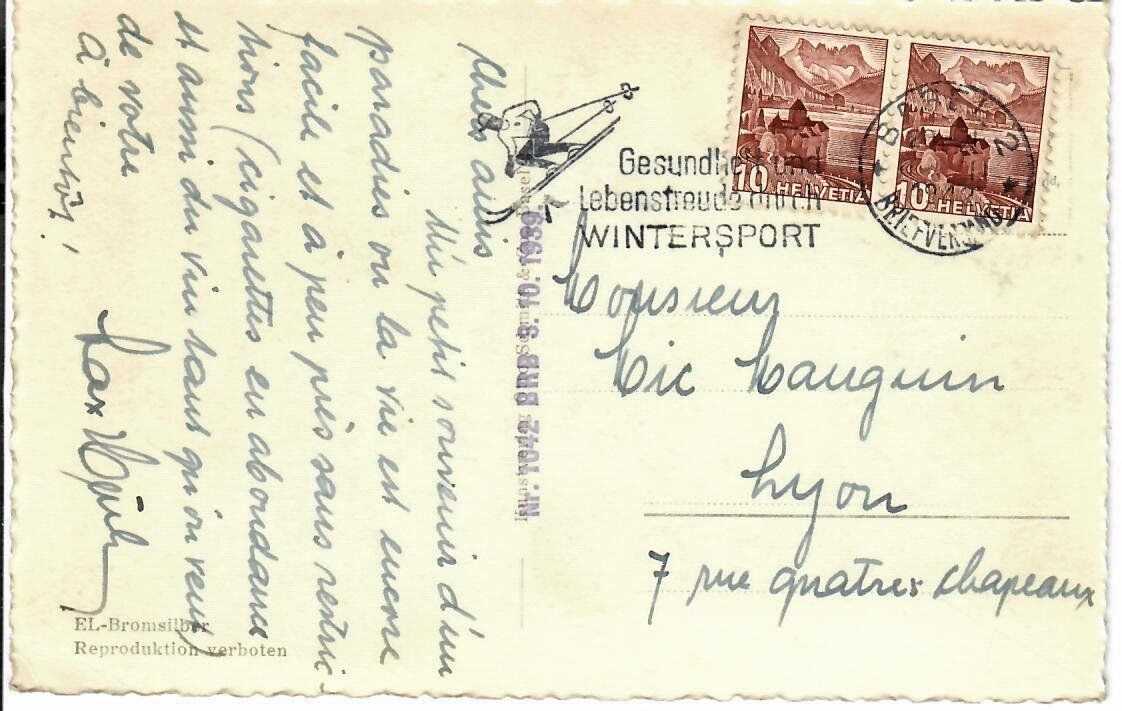 Chers amis
Un petit souvenir d'un
paradies ou la vie est encore
facile et à peu près sans restric-
tions (cigarettes en abondance
et aussi du vin tant qu'on veut)
de votre
à bientôt,
Max
Gesundheit und
Lebensfreude durch
WINTERSPORT
10 HELVETIA
10 HELVETIA
BRIEFVERSAND
Nr. 1042 BRB 3. 10. 1939.
Monsieur
Mic Mauguin
Lyon
7 rue quatres chapeaux
EL-Bromsilber
Reproduktion verboten